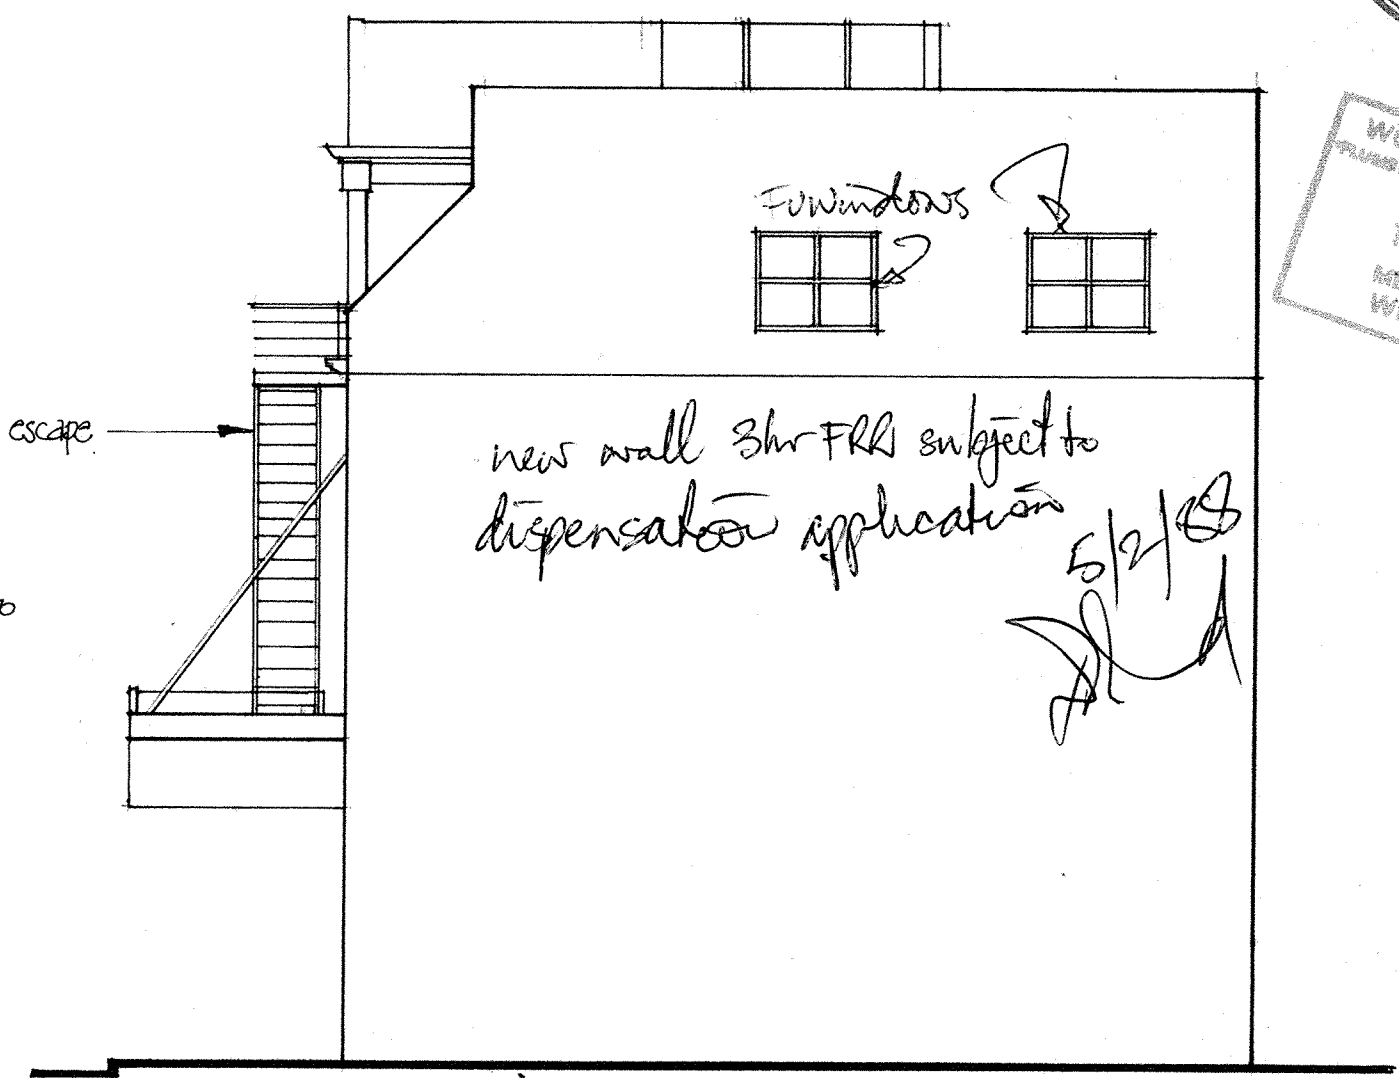 FW windows
escape
new wall 3hr FRR subject to
dispensation application
5/2/88